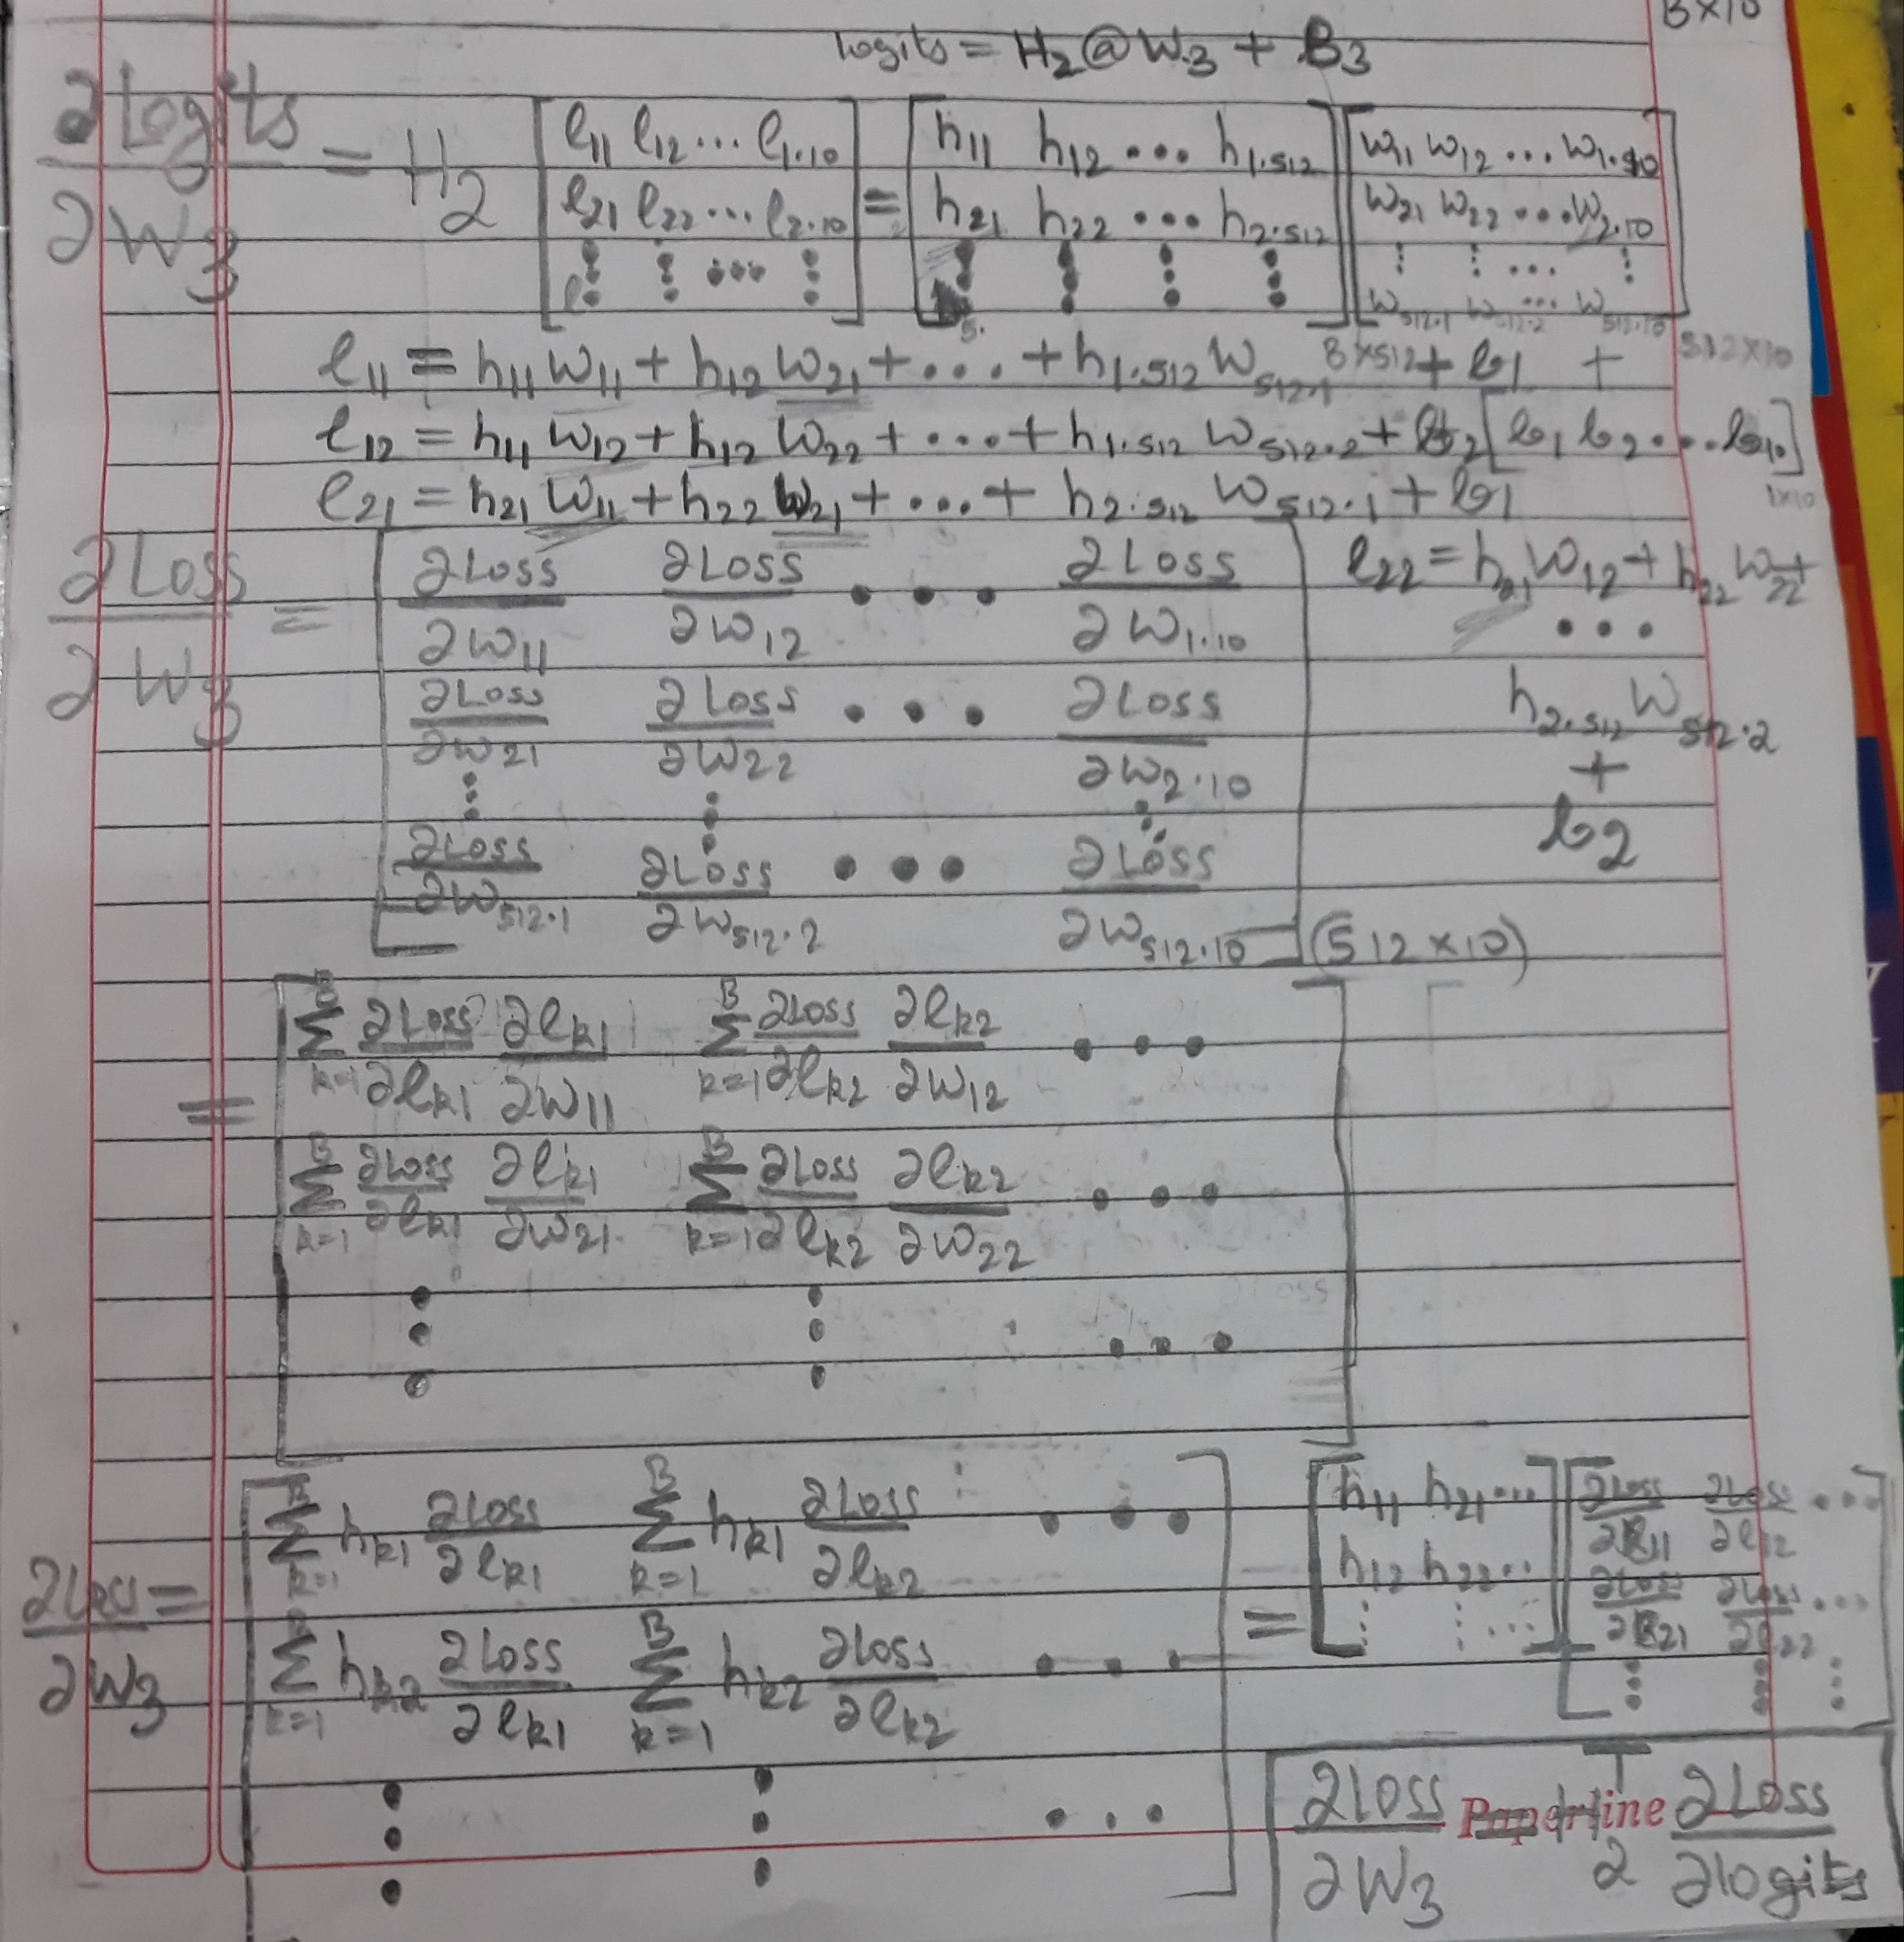 B×10
logits = H₂@W₃ + B₃
∂Logits/∂W₃ = H₂
[l₁₁ l₁₂ ... l₁.₁₀] = [h₁₁ h₁₂ ... h₁.₅₁₂] [w₁₁ w₁₂ ... w₁.₁₀]
[l₂₁ l₂₂ ... l₂.₁₀] [h₂₁ h₂₂ ... h₂.₅₁₂] [w₂₁ w₂₂ ... w₂.₁₀]
⋮ ⋮ ... ⋮ ⋮ ⋮ ⋮ ⋮ ⋮ ⋮ ... ⋮
w₅₁₂.₁ w₅₁₂.₂ ... w₅₁₂.₁₀
B×512 + 512×10
l₁₁ = h₁₁w₁₁ + h₁₂w₂₁ + ... + h₁.₅₁₂w₅₁₂.₁ + b₁
l₁₂ = h₁₁w₁₂ + h₁₂w₂₂ + ... + h₁.₅₁₂w₅₁₂.₂ + b₂ [b₁ b₂ ... b₁₀]
1×10
l₂₁ = h₂₁w₁₁ + h₂₂w₂₁ + ... + h₂.₅₁₂w₅₁₂.₁ + b₁
l₂₂ = h₂₁w₁₂ + h₂₂w₂₂ +
...
h₂.₅₁₂w₅₁₂.₂
+
b₂
∂Loss/∂W₃ =
∂Loss/∂w₁₁ ∂Loss/∂w₁₂ ... ∂Loss/∂w₁.₁₀
∂Loss/∂w₂₁ ∂Loss/∂w₂₂ ... ∂Loss/∂w₂.₁₀
⋮ ⋮ ⋮
∂Loss/∂w₅₁₂.₁ ∂Loss/∂w₅₁₂.₂ ... ∂Loss/∂w₅₁₂.₁₀
(512×10)
= [∑ᴮₖ₌₁ ∂Loss/∂lₖ₁ ∂lₖ₁/∂w₁₁ ∑ᴮₖ₌₁ ∂Loss/∂lₖ₂ ∂lₖ₂/∂w₁₂ ...
∑ᴮₖ₌₁ ∂Loss/∂lₖ₁ ∂lₖ₁/∂w₂₁ ∑ᴮₖ₌₁ ∂Loss/∂lₖ₂ ∂lₖ₂/∂w₂₂ ...
⋮ ⋮ ...]
∂Loss/∂W₃ =
[∑ᴮₖ₌₁ hₖ₁ ∂Loss/∂lₖ₁ ∑ᴮₖ₌₁ hₖ₁ ∂Loss/∂lₖ₂ ...
∑ᴮₖ₌₁ hₖ₂ ∂Loss/∂lₖ₁ ∑ᴮₖ₌₁ hₖ₂ ∂Loss/∂lₖ₂ ...
⋮ ⋮ ...]
= [h₁₁ h₂₁ ...] [∂Loss/∂l₁₁ ∂Loss/∂l₁₂ ...]
[h₁₂ h₂₂ ...] [∂Loss/∂l₂₁ ∂Loss/∂l₂₂ ...]
⋮ ⋮ ... ⋮ ⋮ ⋮
∂Loss/∂W₃ = H₂ᵀ ∂Loss/∂logits
Paperline